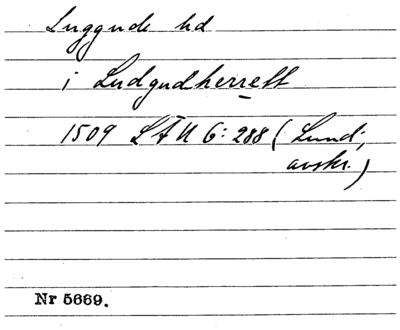 Luggude hd
i Ludgudherrett
1509 LÄU 6:288 (Lund;
avskr.)
Nr 5669.